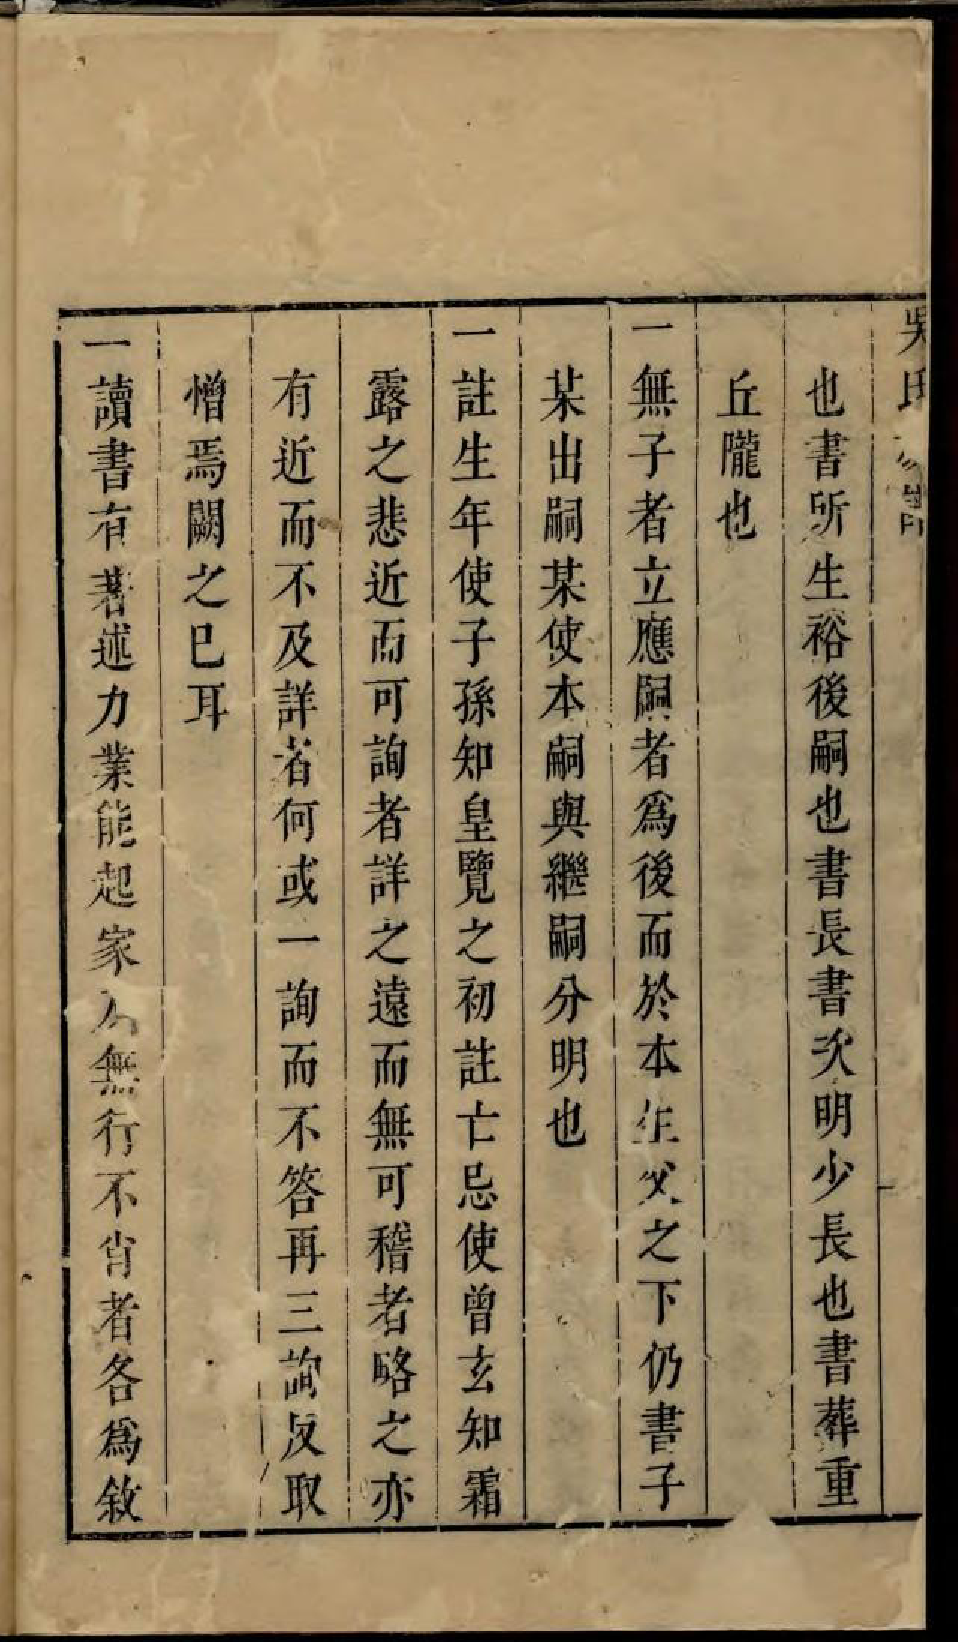 吳氏
也書所生裕後嗣也書長書次明少長也書葬重
丘隴也
一無子者立應嗣者爲後而於本生父之下仍書子
某出嗣某使本嗣與繼嗣分明也
一註生年使子孫知皇覽之初註亡忌使曾玄知霜
露之悲近而可詢者詳之遠而無可稽者略之亦
有近而不及詳者何或一詢而不答再三詢反取
憎焉闕之巳耳
一讀書有著述力業能起家 無行不肖者各爲敘